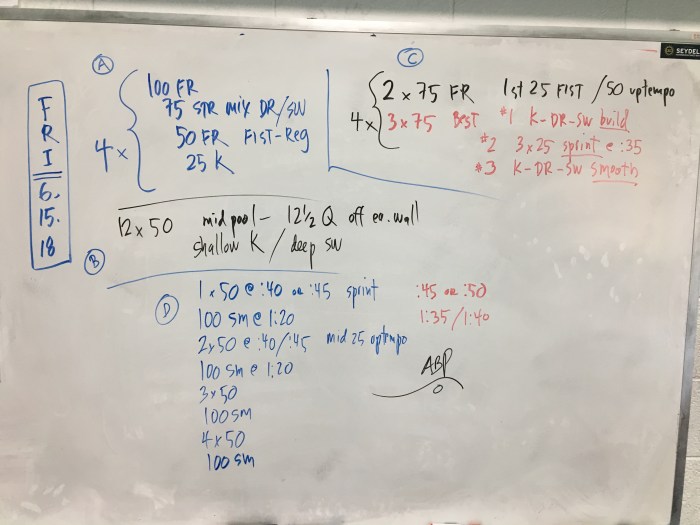 FRI
6.
15.
18
A
4x
100 FR
75 STR mix DR/SW
50 FR FIST-Reg
25 K
C
4x
2 x 75 FR 1st 25 FIST / 50 uptempo
3 x 75 BEST #1 K-DR-SW build
#2 3x25 sprint @ :35
#3 K-DR-SW smooth
B
12 x 50 mid pool - 12½ Q off ea. wall
shallow K / deep SW
D
1 x 50 @ :40 or :45 sprint :45 or :50
100 sm @ 1:20 1:35/1:40
2x50 @ :40/:45 mid 25 uptempo
100 sm @ 1:20
3x50
100 sm
4x50
100 sm
ABP
SEYDEL